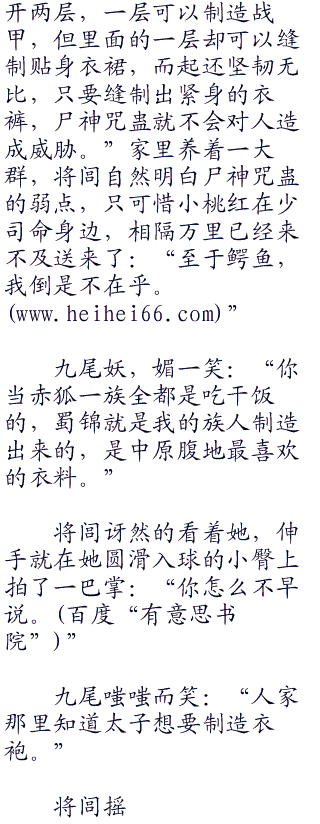 开两层，一层可以制造战
甲，但里面的一层却可以缝
制贴身衣裙，而起还坚韧无
比，只要缝制出紧身的衣
裤，尸神咒蛊就不会对人造
成威胁。”家里养着一大
群，将闾自然明白尸神咒蛊
的弱点，只可惜小桃红在少
司命身边，相隔万里已经来
不及送来了：“至于鳄鱼，
我倒是不在乎。
(www.heihei66.com)”
九尾妖，媚一笑：“你
当赤狐一族全都是吃干饭
的，蜀锦就是我的族人制造
出来的，是中原腹地最喜欢
的衣料。”
将闾讶然的看着她，伸
手就在她圆滑入球的小臀上
拍了一巴掌：“你怎么不早
说。(百度“有意思书
院”)”
九尾嗤嗤而笑：“人家
那里知道太子想要制造衣
袍。”
将闾摇